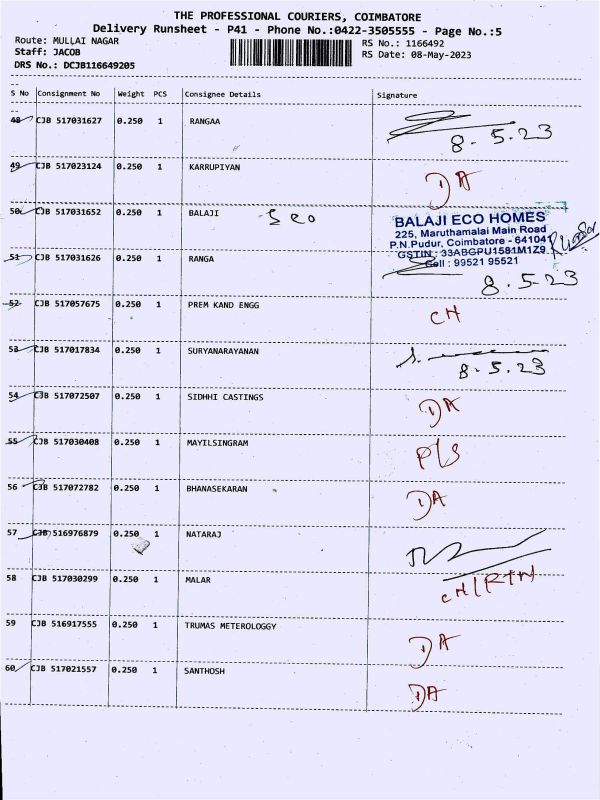 THE PROFESSIONAL COURIERS, COIMBATORE
Delivery Runsheet - P41 - Phone No.:0422-3505555 - Page No.:5
Route: MULLAI NAGAR RS No.: 1166492
Staff: JACOB RS Date: 08-May-2023
DRS No.: DCJB116649205
S No Consignment No Weight PCS Consignee Details Signature
48 CJB 517031627 0.250 1 RANGAA 8.5.23
49 CJB 517023124 0.250 1 KARRUPIYAN DA
50 CJB 517031652 0.250 1 BALAJI
BALAJI ECO HOMES
225, Maruthamalai Main Road
P.N.Pudur, Coimbatore - 64104
GSTIN : 33ABGPU1581M1Z9
Cell : 99521 95521
51 CJB 517031626 0.250 1 RANGA 8.5.23
52 CJB 517057675 0.250 1 PREM KAND ENGG CH
53 CJB 517017834 0.250 1 SURYANARAYANAN 8.5.23
54 CJB 517072507 0.250 1 SIDHHI CASTINGS DA
55 CJB 517030408 0.250 1 MAYILSINGRAM P/S
56 CJB 517072782 0.250 1 BHANASEKARAN DA
57 CJB 516976879 0.250 1 NATARAJ
58 CJB 517030299 0.250 1 MALAR CH/RTN
59 CJB 516917555 0.250 1 TRUMAS METEROLOGGY DA
60 CJB 517021557 0.250 1 SANTHOSH DA